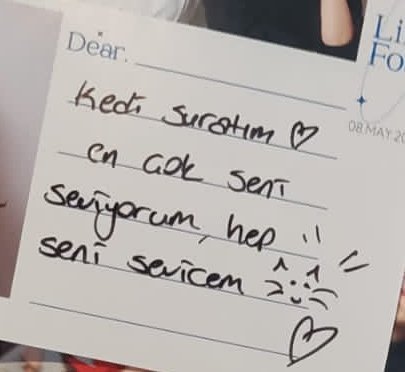 Dear.
Kedi suratım ♡
en çok seni
seviyorum, hep !!
seni sevicem
♡
Li
Fo
08 MAY 20